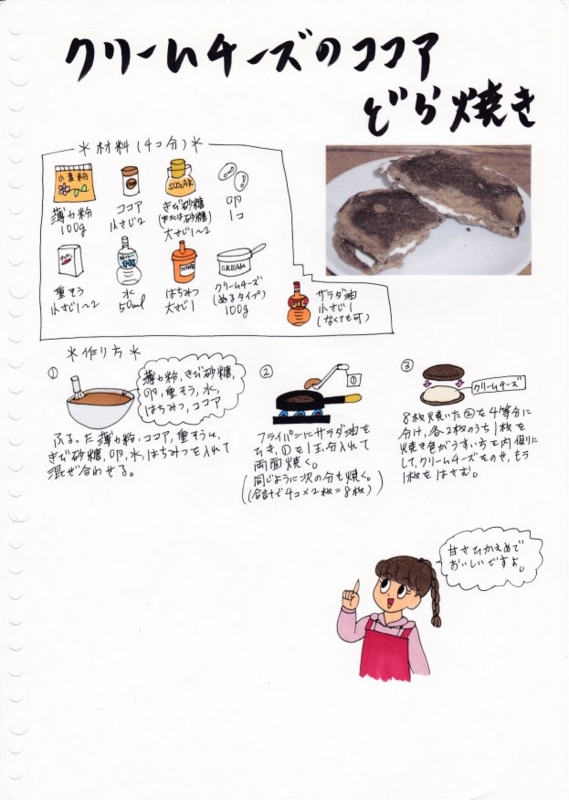 クリームチーズのココア
どら焼き
＊材料(4コ分)＊
小麦粉
薄力粉
100g
ココア
小さじ2
SUGAR
きび砂糖
(または砂糖)
大さじ1〜2
卵
1コ
重そう
小さじ1〜2
水
50ml
はちみつ
大さじ1
CREAM
クリームチーズ
(ぬるタイプ)
100g
サラダ油
小さじ1
(なくても可)
＊作り方＊
①
薄力粉、きび砂糖、
卵、重そう、水、
はちみつ、ココア
ふるった薄力粉、ココア、重そうに、
きび砂糖、卵、水、はちみつを入れて
混ぜ合わせる。
②
①
フライパンにサラダ油を
ひき、①を1玉分入れて
両面焼く。
(同じように次の分も焼く。
(合計で4コ×2枚=8枚))
③
クリームチーズ
8枚焼いた②を4等分に
分け、各2枚のうち1枚を
焼き色がうすい方を内側に
して、クリームチーズをのせ、もう
1枚をはさむ。
甘さひかえめで
おいしいですよ。